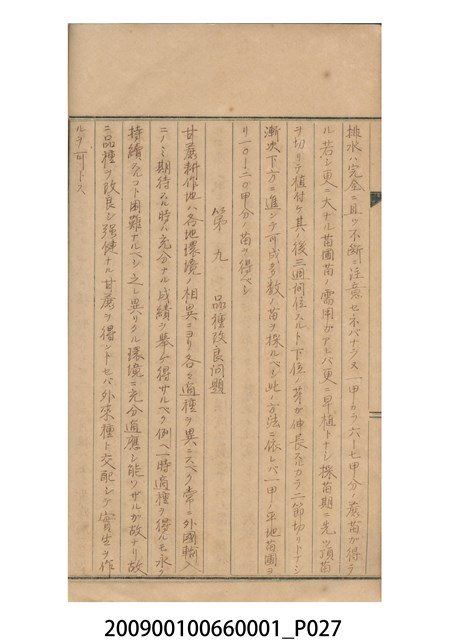 排水ハ完全ニ且ツ不断ニ注意セネバナラヌ一甲カラ六ー七甲分ノ蔗苗ガ得ラ
ル若シ更ニ大ナル苗圃苗ノ需用ガアレバ更ニ早植トナシ採苗期ニ先ヅ頂苗
ヲ切リテ植付ケ其ノ後三週間位ヘルト下位ノ芽ガ伸長スルカラ二節切リトナシ
漸次下方ニ進ンデ可成多数ノ苗ヲ採ルベシ此ノ方法ニ依レバ一甲ノ平地苗圃ヨ
リ一〇ー二〇甲分ノ苗ヲ得ベシ
第九 品種改良問題
甘蔗耕作地ハ各地環境ノ相異ニヨリ各々適種ヲ異ニスベク常ニ外国輸入
ニノミ期待スル時ハ充分ナル成績ヲ挙ゲ得ザルベク例ヘ一時適種ヲ得ルモ永ク
持続スルコト困難ナルベシ之レ異リタル環境ニ充分適應シ能ハザルガ故ナリ故
ニ品種ヲ改良シ强健ナル甘蔗ヲ得ントセバ外來種ト交配シテ實生ヲ作
ルヲ可トス
200900100660001_P027